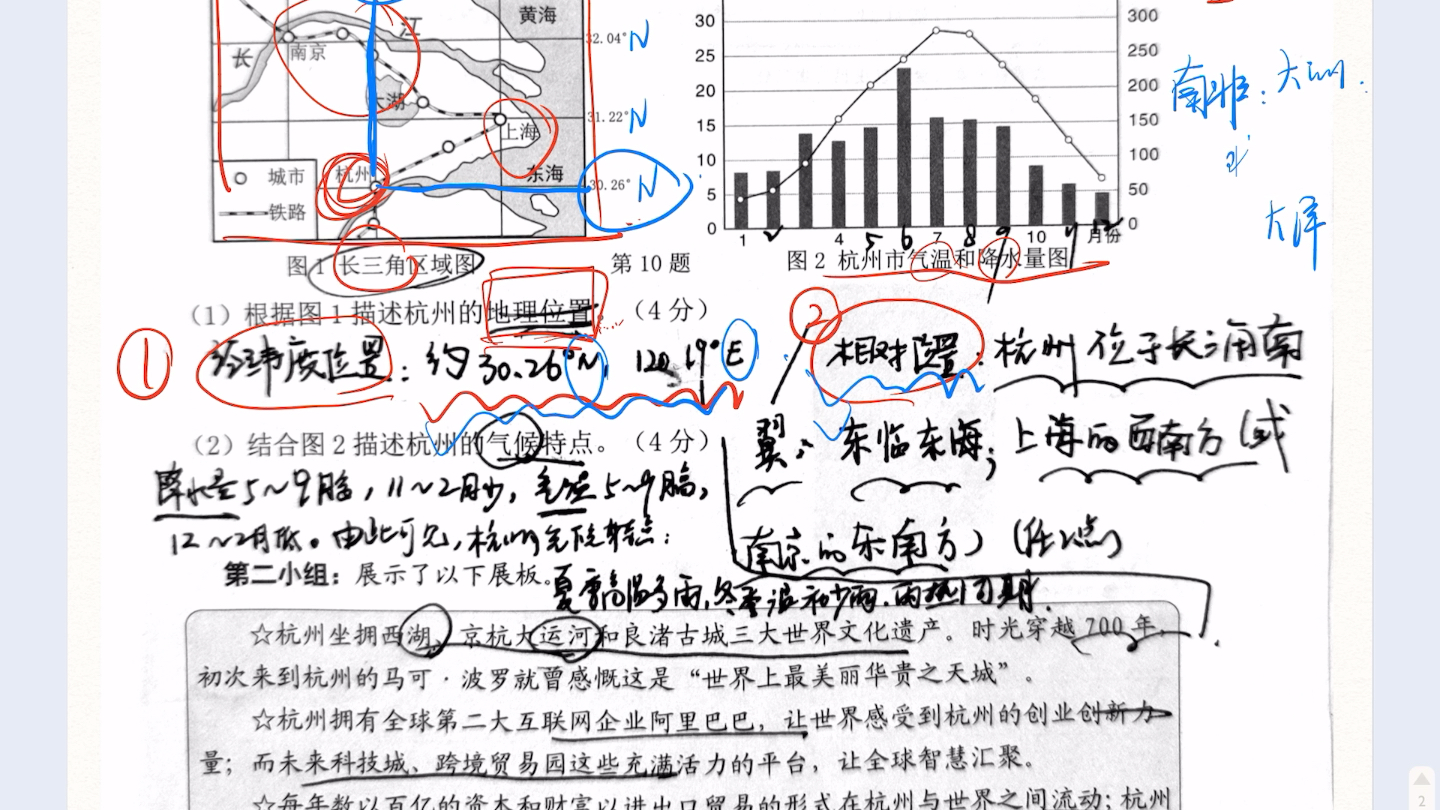 黄海
江
32.04° N
南京
长
太湖
31.22° N
上海
城市
杭州
东海
30.26° N
铁路
30
25
20
15
10
5
0
300
250
200
150
100
50
0
1 2 4 5 6 7 8 9 10 11 12 月份
大洋
图1 长三角区域图
第10题
图2 杭州市气温和降水量图
(1) 根据图1描述杭州的地理位置。(4分)
① 经纬度位置: 约30.26°N, 120.19°E
② 相对位置: 杭州位于长三角南
翼; 东临东海; 上海的西南方(或
南京的东南方) (任2点)
(2) 结合图2描述杭州的气候特点。(4分)
降水量5~9月高, 11~2月少, 气温5~9月高,
12~2月低。由此可见, 杭州气候特点:
夏季高温多雨, 冬季温和少雨. 雨热同期.
第二小组: 展示了以下展板。
☆杭州坐拥西湖、京杭大运河和良渚古城三大世界文化遗产。时光穿越700年,
初次来到杭州的马可·波罗就曾感慨这是“世界上最美丽华贵之天城”。
☆杭州拥有全球第二大互联网企业阿里巴巴, 让世界感受到杭州的创业创新力
量; 而未来科技城、跨境贸易园这些充满活力的平台, 让全球智慧汇聚。
☆每年数以百亿的资本和财富以进出口贸易的形式在杭州与世界之间流动; 杭州
2